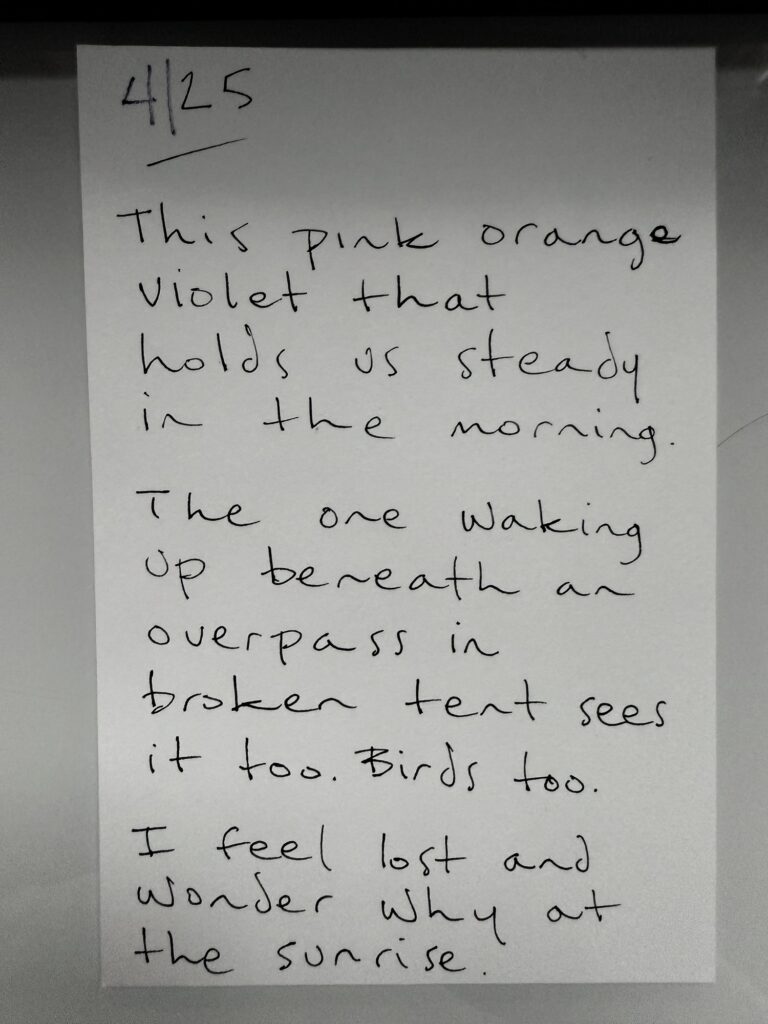 4/25
This pink orange
violet that
holds us steady
in the morning.
The one waking
up beneath an
overpass in
broken tent sees
it too. Birds too.
I feel lost and
wonder why at
the sunrise.